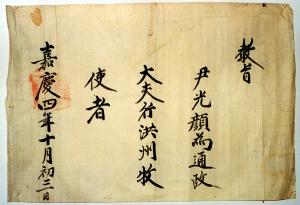 教旨
尹光顔為通政
大夫行洪州牧
使者
嘉慶四年十月初三日